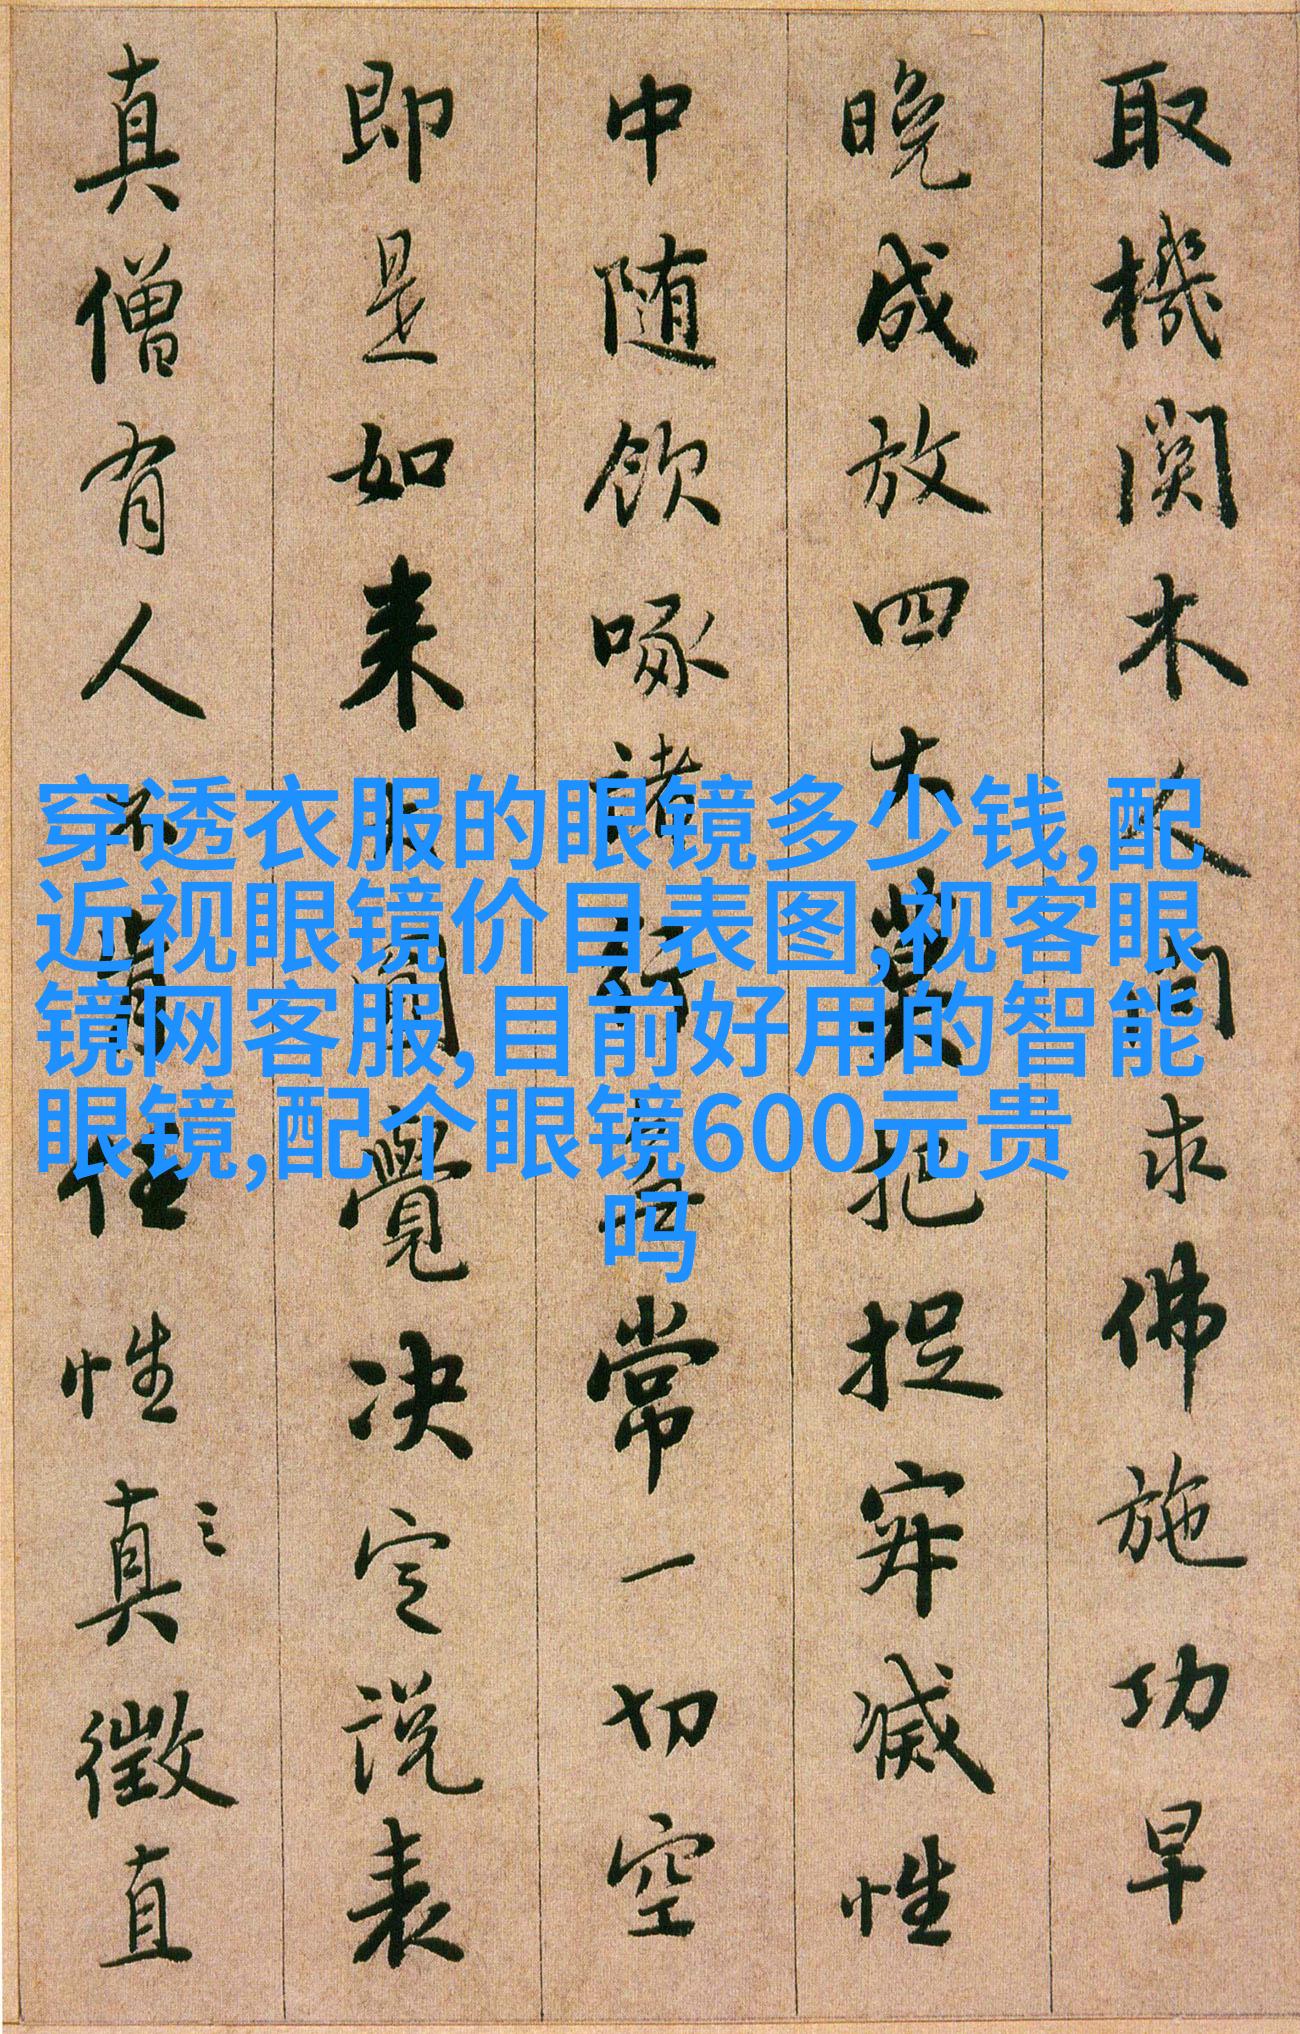 取機関木人問求佛施功早
晚成放四大莫把捉寂滅性
中随飲啄諸行無常一切空
即是如来大圓覺决定説表
真僧有人不肯任性真徵直
穿透衣服的眼镜多少钱,配
近视眼镜价目表图,视客眼
镜网客服,目前好用的智能
眼镜,配个眼镜600元贵
吗